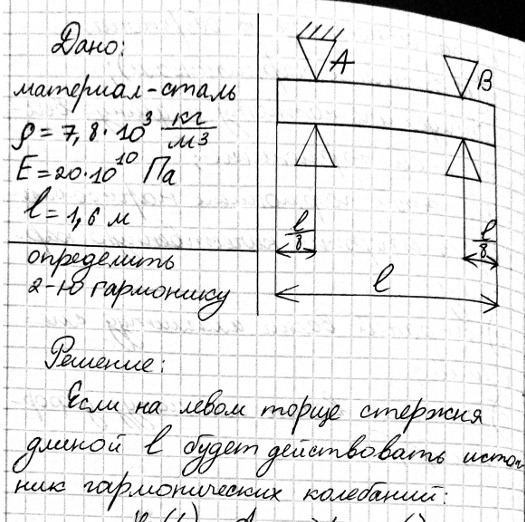 Дано:
материал-сталь
ρ = 7,8·10³ кг/м³
E = 20·10¹⁰ Па
l = 1,6 м
определить
2-ю гармонику
A
B
l/8
l/8
l
Решение:
Если на левом торце стержня
длиной l будет действовать источ-
ник гармонических колебаний: